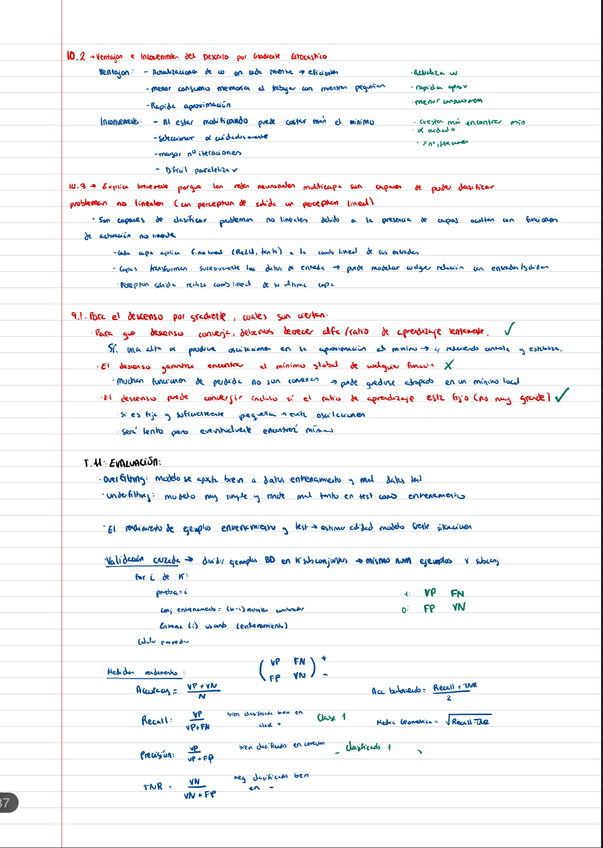 10.2 → Ventajas e Inconvenientes del Descenso por Gradiente Estocástico
Ventajas: - Actualizaciones de w en cada muestra → eficientes
- menor consumo memoria al trabajar con muestras pequeñas
- Rápida aproximación
· Actualiza w
· rapida aprox
· menor consumo mem
Inconvenientes: - Al estar modificando puede costar más el mínimo
- seleccionar α cuidadosamente
- mayor nº iteraciones
- Difícil paralelizar
· cuesta más encontrar min
· α cuidado
· > nº iteraciones
10.3 → Explica brevemente porque las redes neuronales multicapa son capaces de poder clasificar
problemas no lineales (con perceptron de salida un perceptron lineal)
· Son capaces de clasificar problemas no lineales debido a la presencia de capas ocultas con funciones
de activación no lineales
- cada capa aplica f. no lineal (ReLU, tanh) a la comb lineal de sus entradas
- Capas transforman sucesivamente los datos de entrada → puede modelar cualquier relación con entradas/salidas
- Perceptron salida realiza comb lineal de su ultima capa
9.1. Para el descenso por gradiente, cuales son ciertas:
· Para que descenso converja, debemos decrecer alfa/ratio de aprendizaje lentamente. ✓
Sí. Una alta α produce oscilaciones en la aproximación al mínimo → ir reduciendo controla y estabiliza.
· El descenso garantiza encontrar el mínimo global de cualquier función X
· Muchas funciones de perdida no son convexas → puede quedarse atrapado en un mínimo local
· El descenso puede converger incluso si el ratio de aprendizaje esta fijo (no muy grande) ✓
Si es fijo y suficientemente pequeña → evita oscilaciones
· Será lento pero eventualmente encontrará mínimo
T.11: EVALUACIÓN:
· Overfitting: modelo se ajusta bien a datos entrenamiento y mal datos test
· Underfitting: modelo muy simple y rinde mal tanto en test como entrenamiento
· El rendimiento de ejemplos entrenamiento y test → estimar calidad modelo frente situaciones
Validación cruzada → dividir ejemplos BD en K subconjuntos → mismo num ejemplos x subconj
for i de K:
prueba = i
conj entrenamiento = (K-1)
Entrena (i) usando (entrenamiento)
Calcular promedio
1: VP FN
0: FP VN
Medidas rendimiento:
( VP FN ) +
( FP VN ) -
Accuracy = VP + VN / N
Acc balanceado = Recall + TNR / 2
Recall: VP / VP+FN bien clasificados bien en clase + Clase 1
Media Geometrica = √Recall·TNR
Precisión: VP / VP+FP bien clasificados en - clasificados 1
TNR = VN / VN + FP neg clasificados bien en -
37